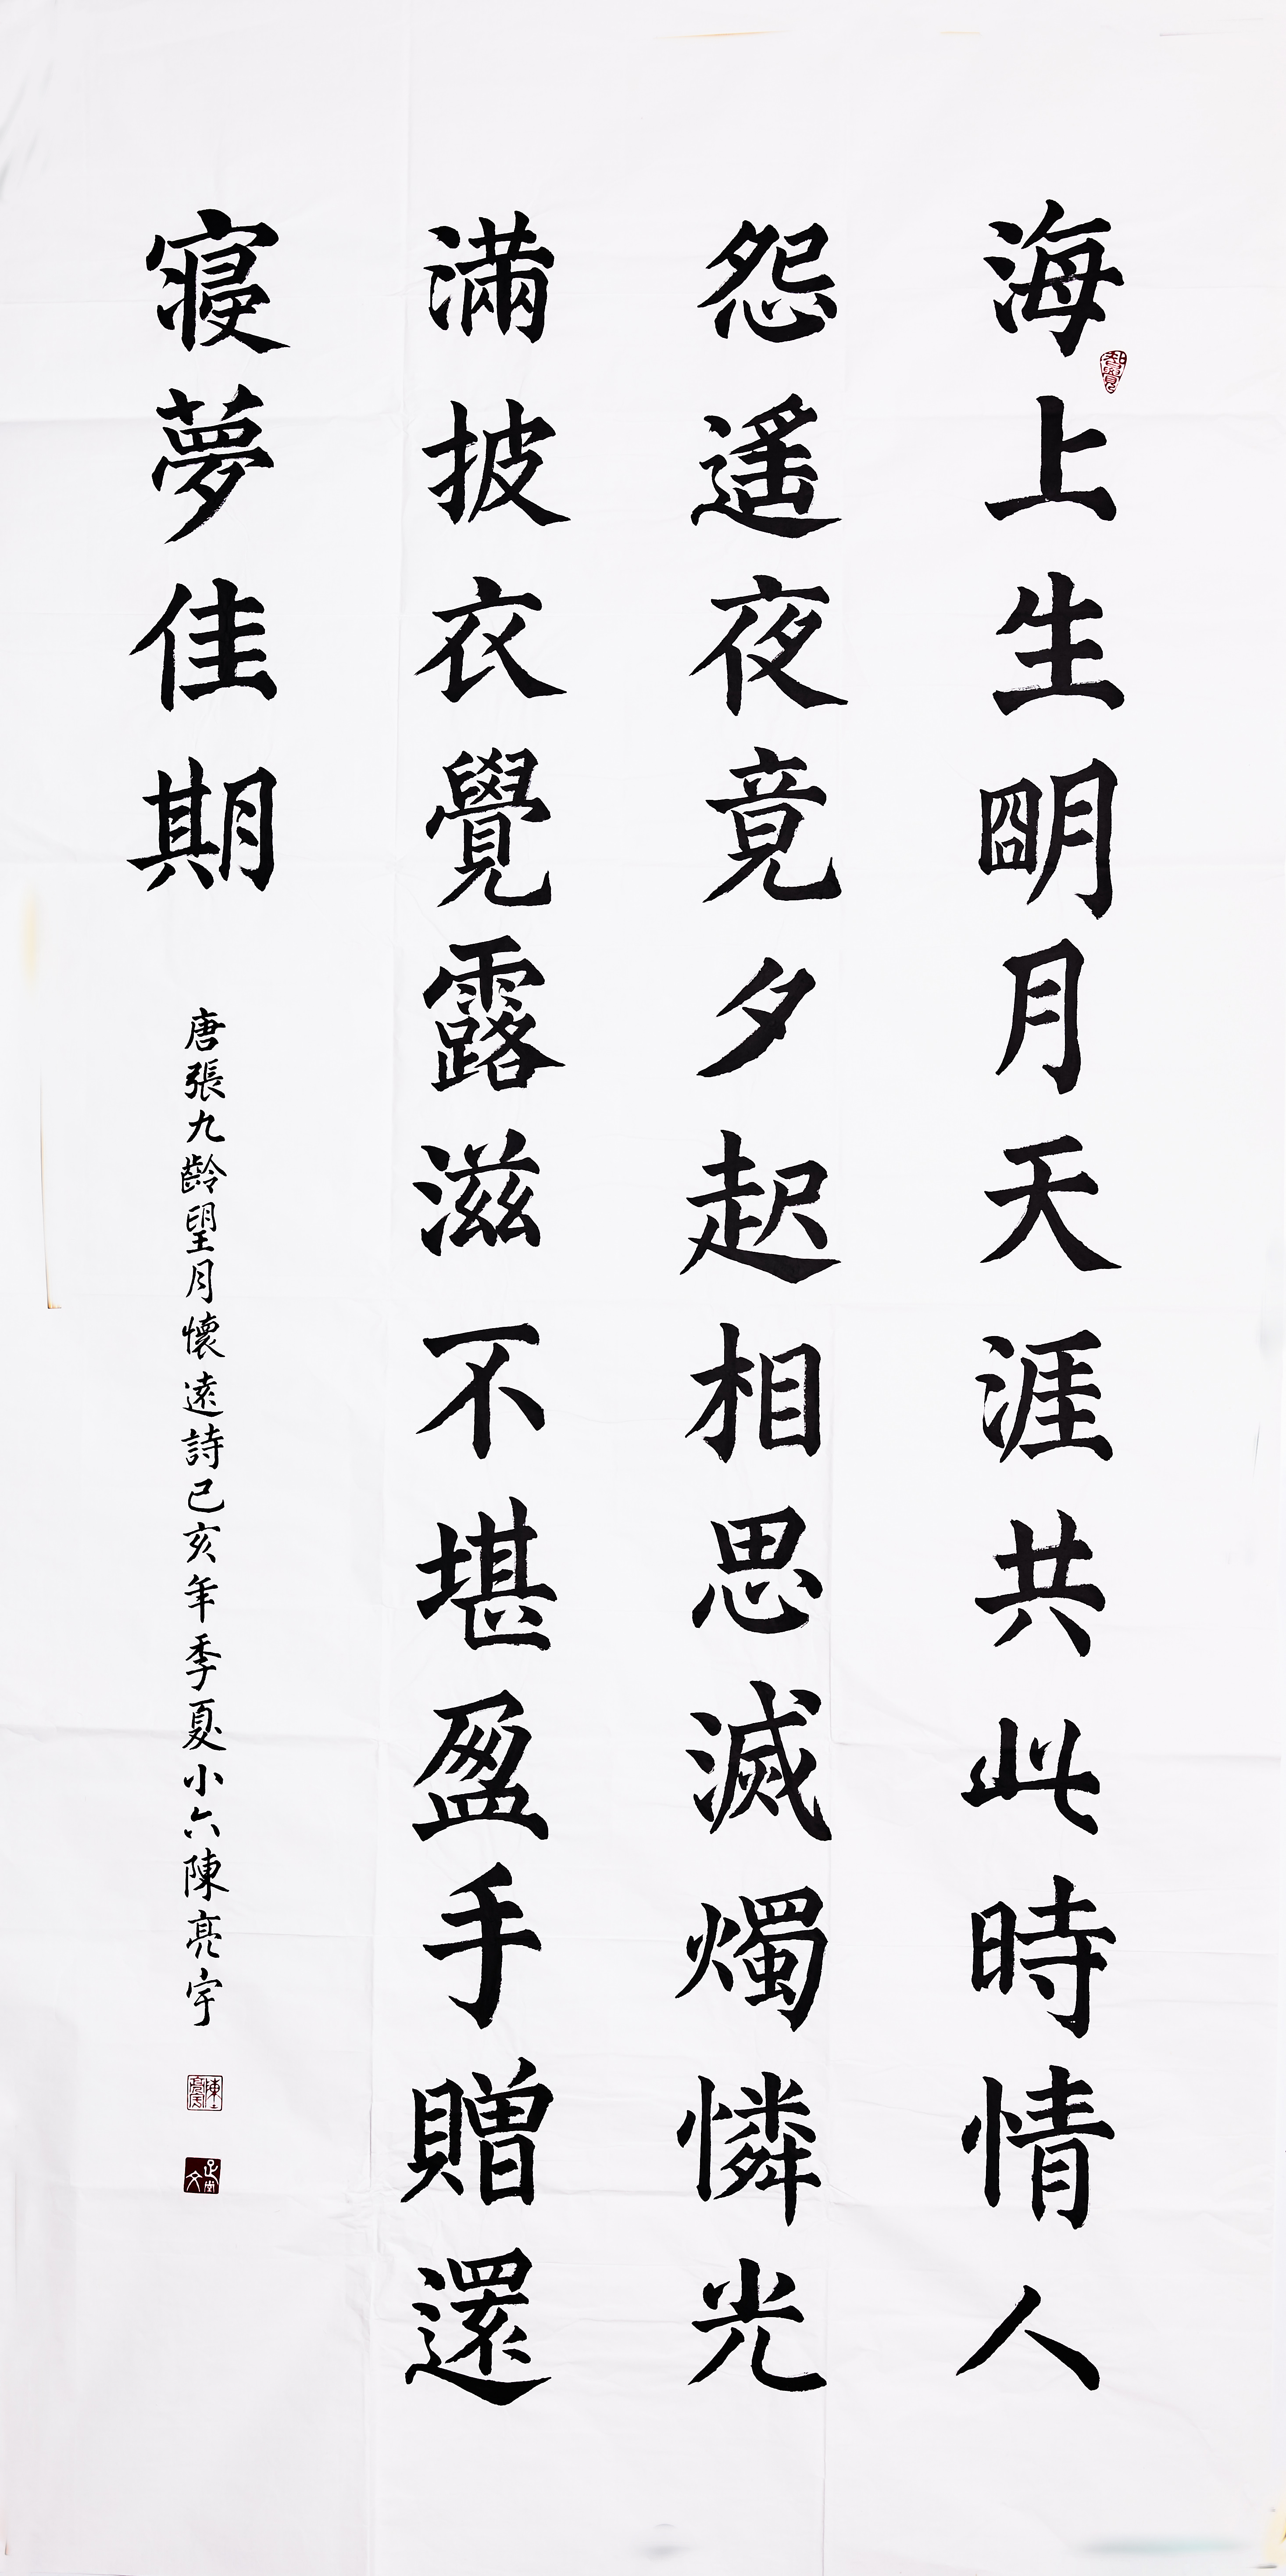 海上生朙月天涯共此時情人
怨遥夜竟夕起相思滅燭憐光
滿披衣覺露滋不堪盈手贈還
寢夢佳期
唐張九齡望月懷遠詩己亥年季夏小六陳亮宇